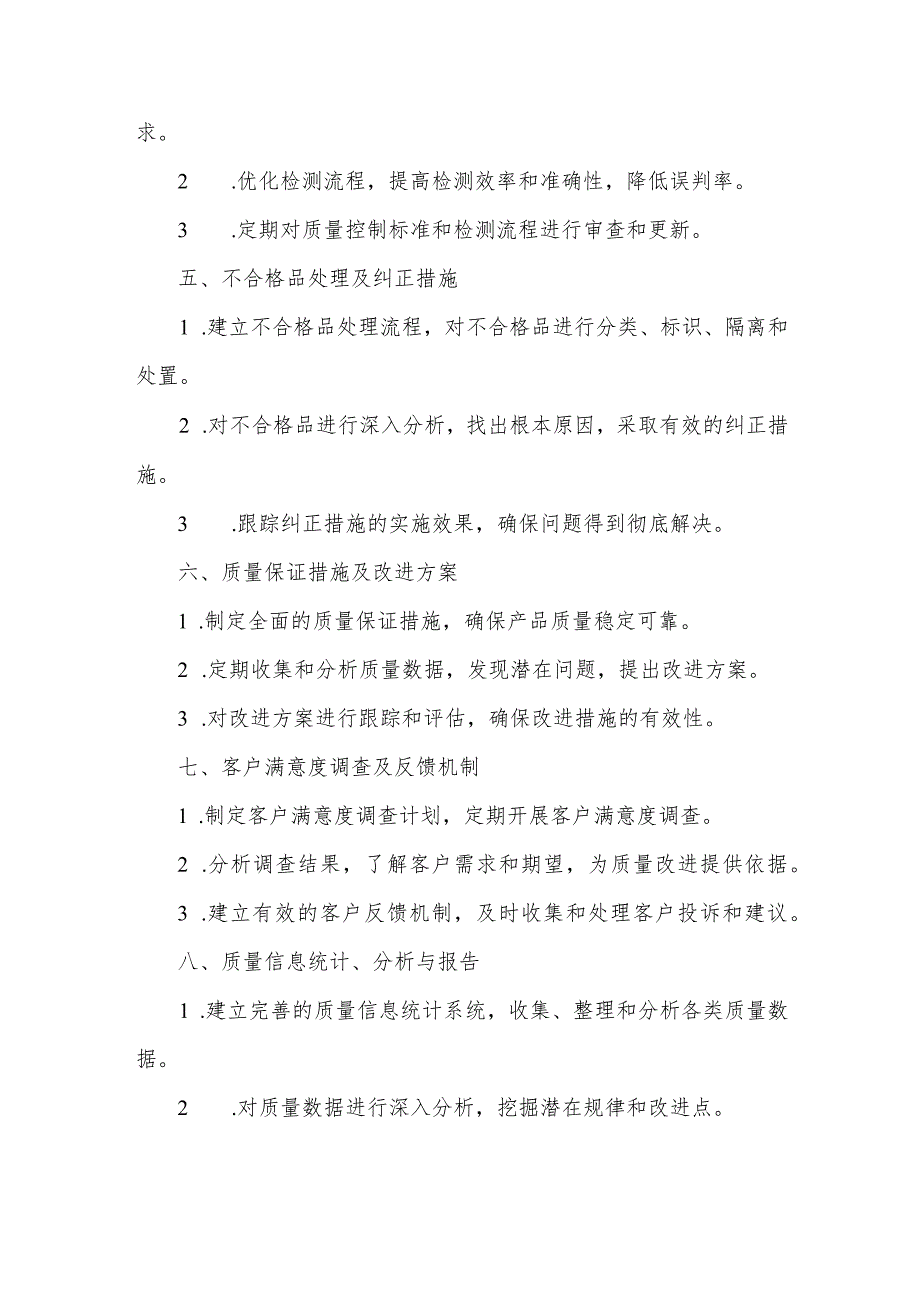 求。
2 .优化检测流程，提高检测效率和准确性，降低误判率。
3 .定期对质量控制标准和检测流程进行审查和更新。
五、不合格品处理及纠正措施
1 .建立不合格品处理流程，对不合格品进行分类、标识、隔离和
处置。
2 .对不合格品进行深入分析，找出根本原因，采取有效的纠正措
施。
3 .跟踪纠正措施的实施效果，确保问题得到彻底解决。
六、质量保证措施及改进方案
1 .制定全面的质量保证措施，确保产品质量稳定可靠。
2 .定期收集和分析质量数据，发现潜在问题，提出改进方案。
3 .对改进方案进行跟踪和评估，确保改进措施的有效性。
七、客户满意度调查及反馈机制
1 .制定客户满意度调查计划，定期开展客户满意度调查。
2 .分析调查结果，了解客户需求和期望，为质量改进提供依据。
3 .建立有效的客户反馈机制，及时收集和处理客户投诉和建议。
八、质量信息统计、分析与报告
1 .建立完善的质量信息统计系统，收集、整理和分析各类质量数
据。
2 .对质量数据进行深入分析，挖掘潜在规律和改进点。